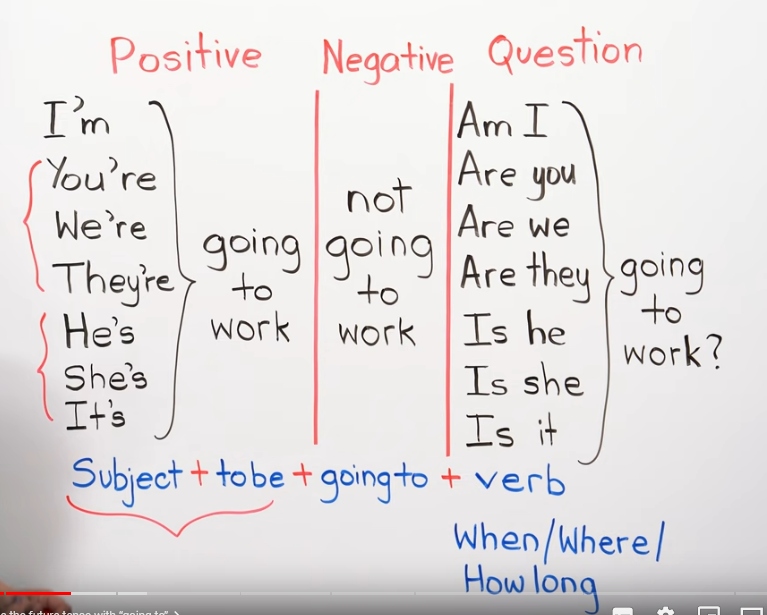 Positive Negative Question
I'm
You're
We're
They're
He's
She's
It's
going
to
work
not
going
to
work
Am I
Are you
Are we
Are they
Is he
Is she
Is it
going
to
work?
Subject + to be + going to + verb
When/Where/
How long
the future tense with "going to"